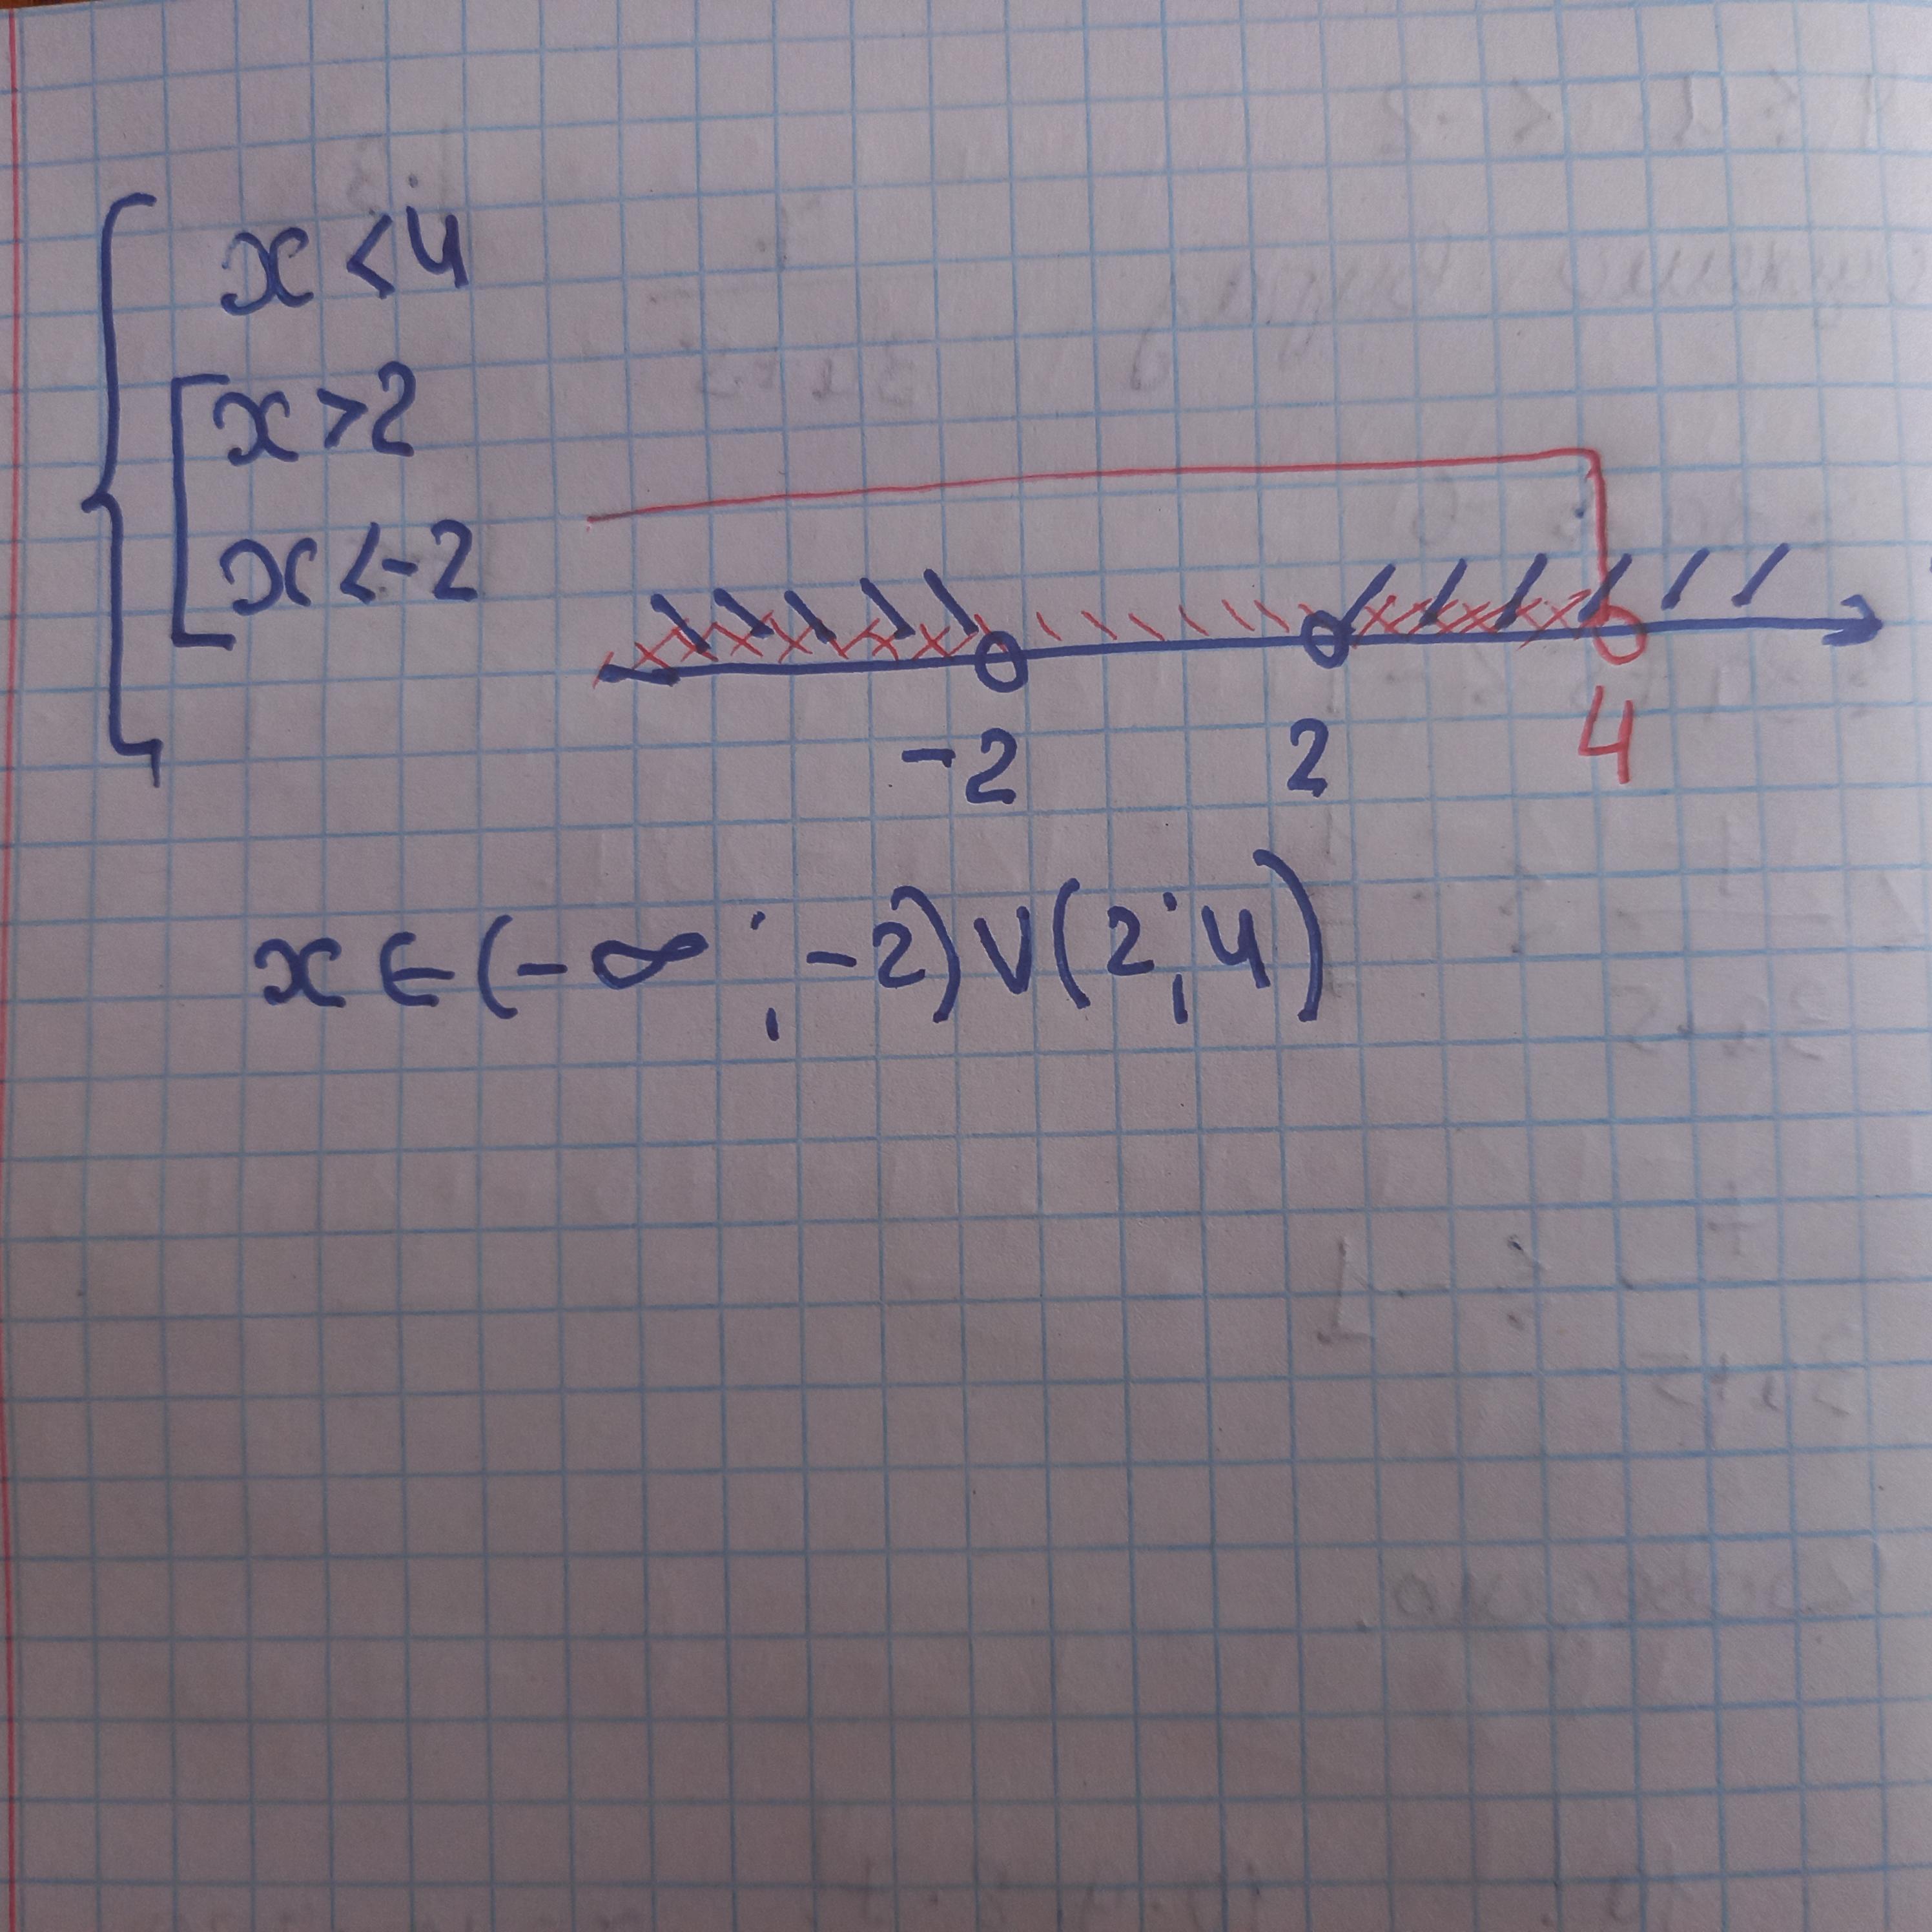 x < 4
x > 2
x < -2
-2 2 4
x ∈ (-∞ ; -2) ∨ (2 ; 4)